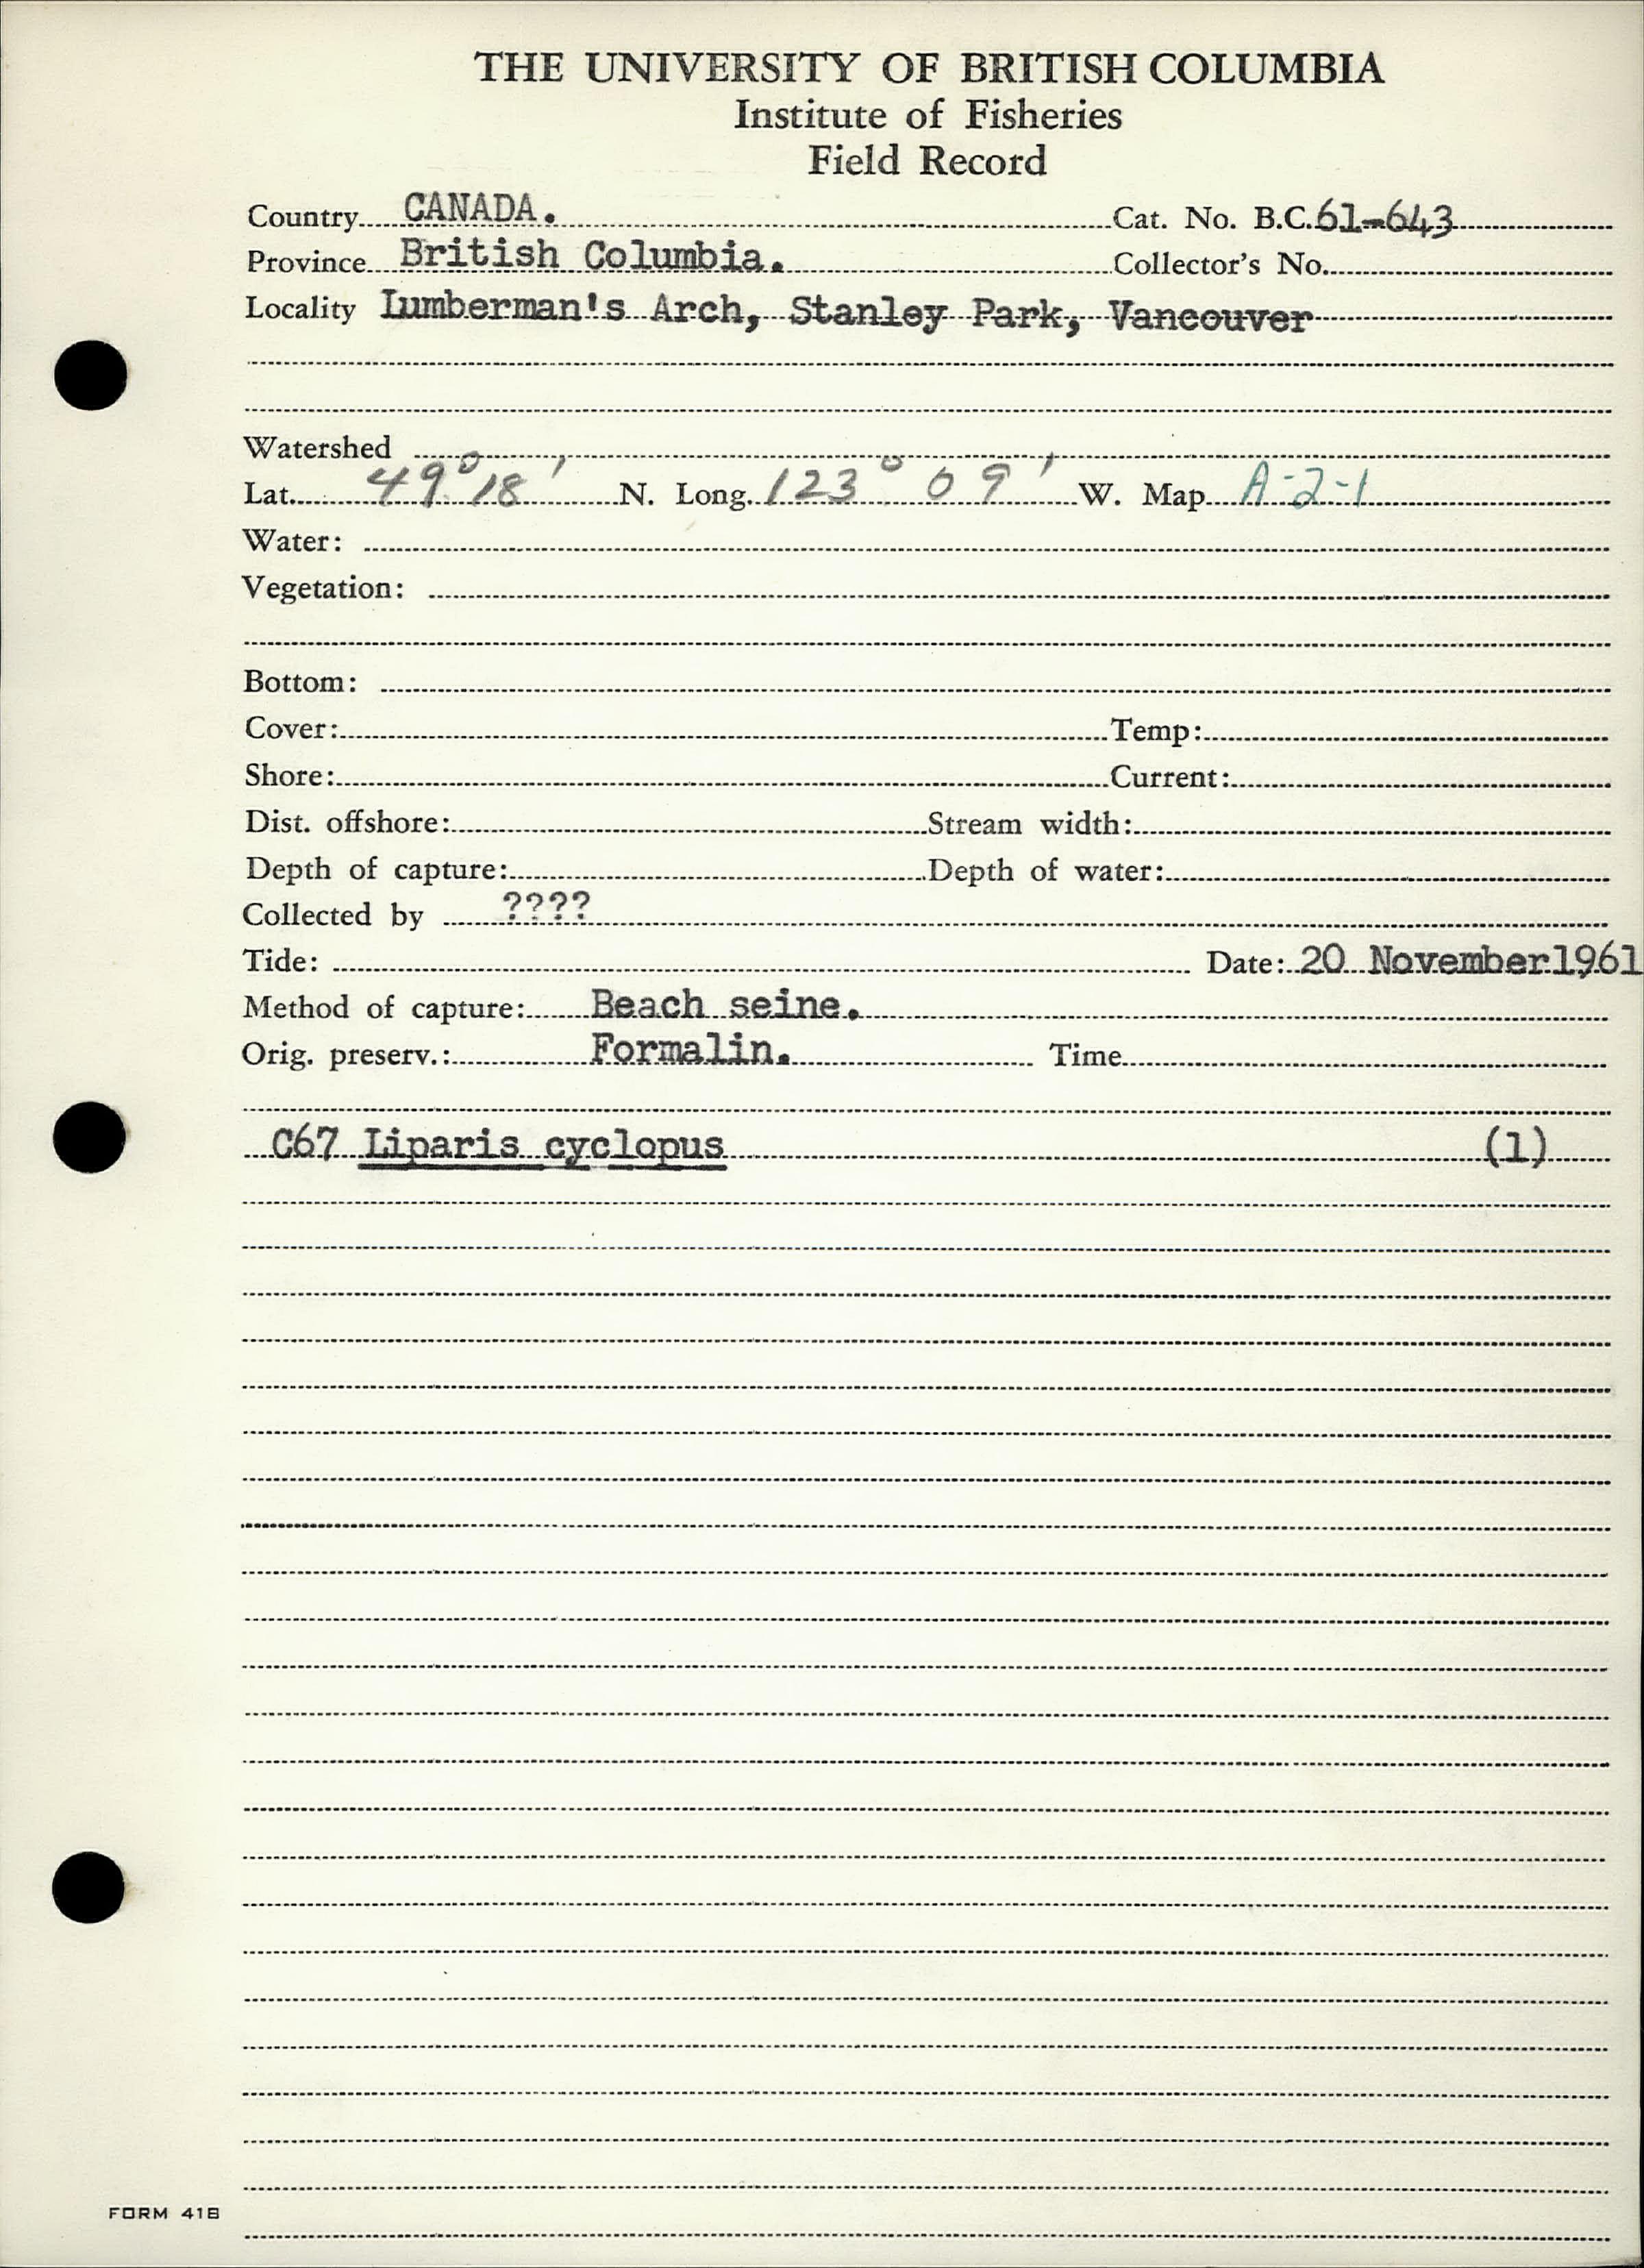 THE UNIVERSITY OF BRITISH COLUMBIA
Institute of Fisheries
Field Record
Country CANADA. Cat. No. B.C. 61-643
Province British Columbia. Collector's No.
Locality Lumberman's Arch, Stanley Park, Vancouver
Watershed
Lat. 49° 18' N. Long. 123° 09' W. Map A-2-1
Water:
Vegetation:
Bottom:
Cover: Temp:
Shore: Current:
Dist. offshore: Stream width:
Depth of capture: Depth of water:
Collected by ????
Tide: Date: 20 November 1961
Method of capture: Beach seine.
Orig. preserv.: Formalin. Time
C67 Liparis cyclopus (1)
FORM 41B